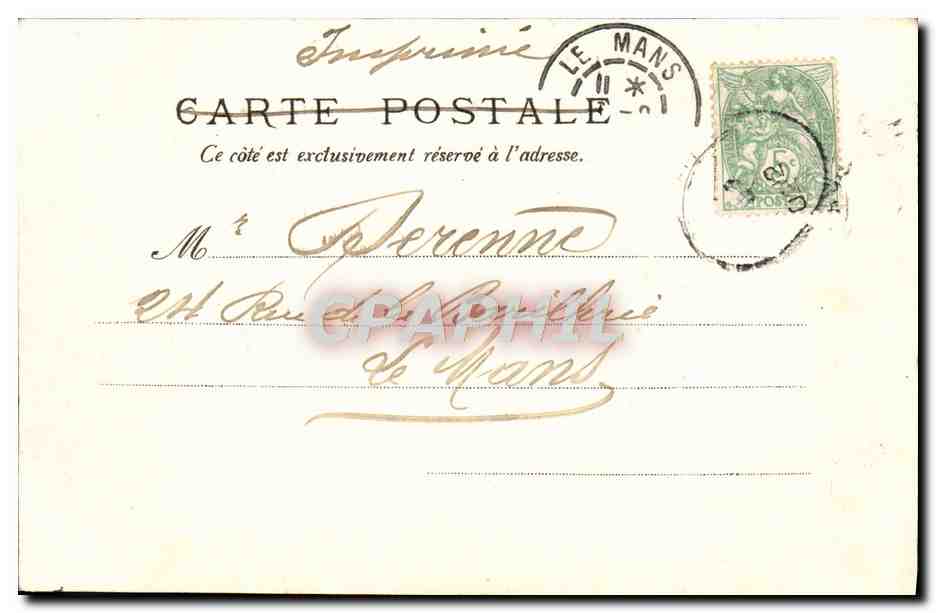 Imprimé
LE MANS
11 *
CARTE POSTALE
Ce côté est exclusivement réservé à l'adresse.
5c
POSTES
Mr Perenne
24 Rue de la
CPAPHIL
Le Mans